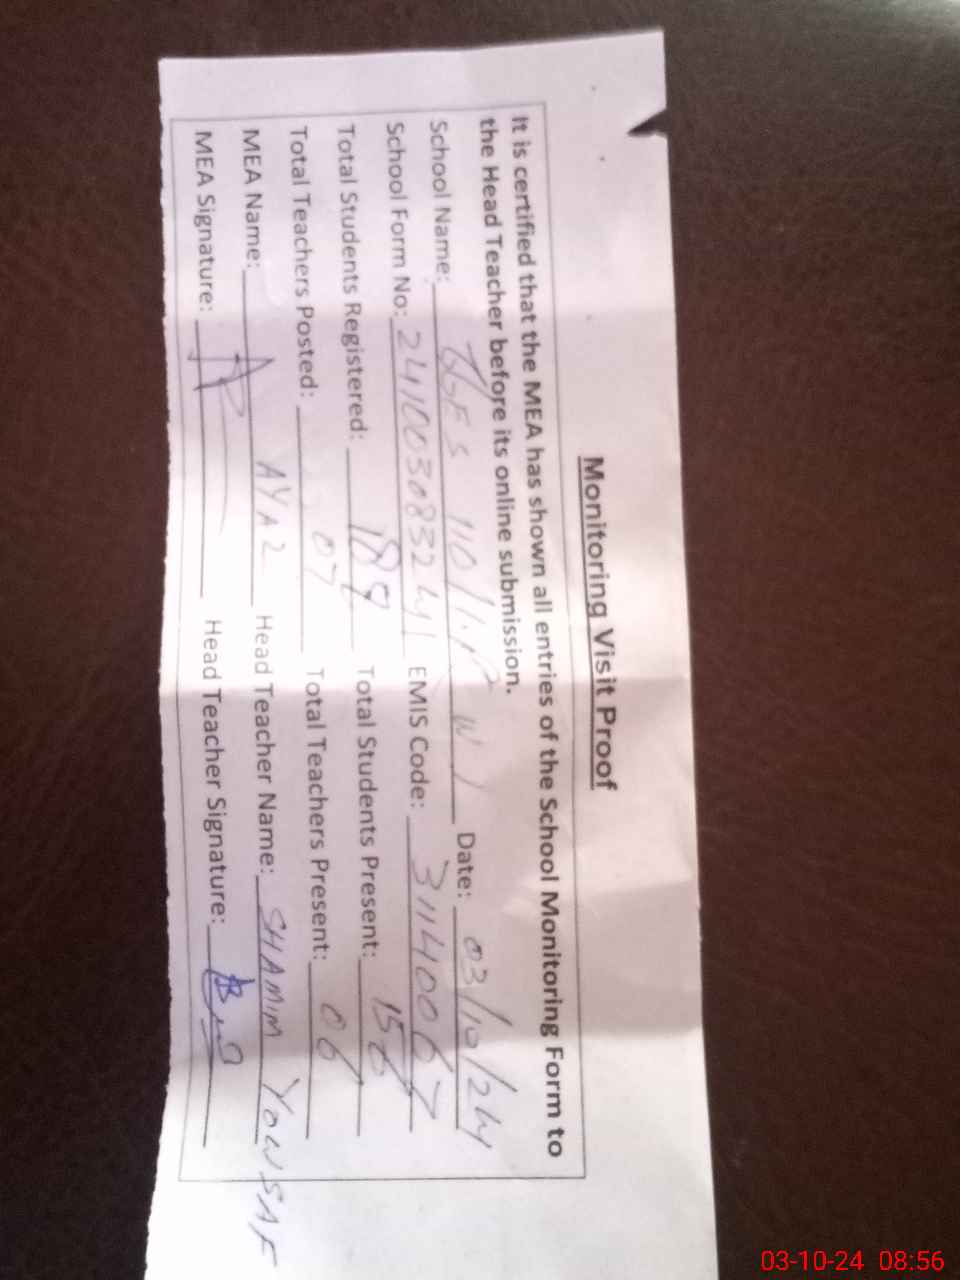 Monitoring Visit Proof
It is certified that the MEA has shown all entries of the School Monitoring Form to
the Head Teacher before its online submission.
School Name: GGES 110/1.P W) Date: 03/10/24
School Form No: EMIS Code: 31140067
Total Students Registered: Total Students Present:
Total Teachers Posted: 07 Total Teachers Present: 06
MEA Name: AYAZ Head Teacher Name: SHAMIM YOWSAF
MEA Signature: Head Teacher Signature:
03-10-24 08:56